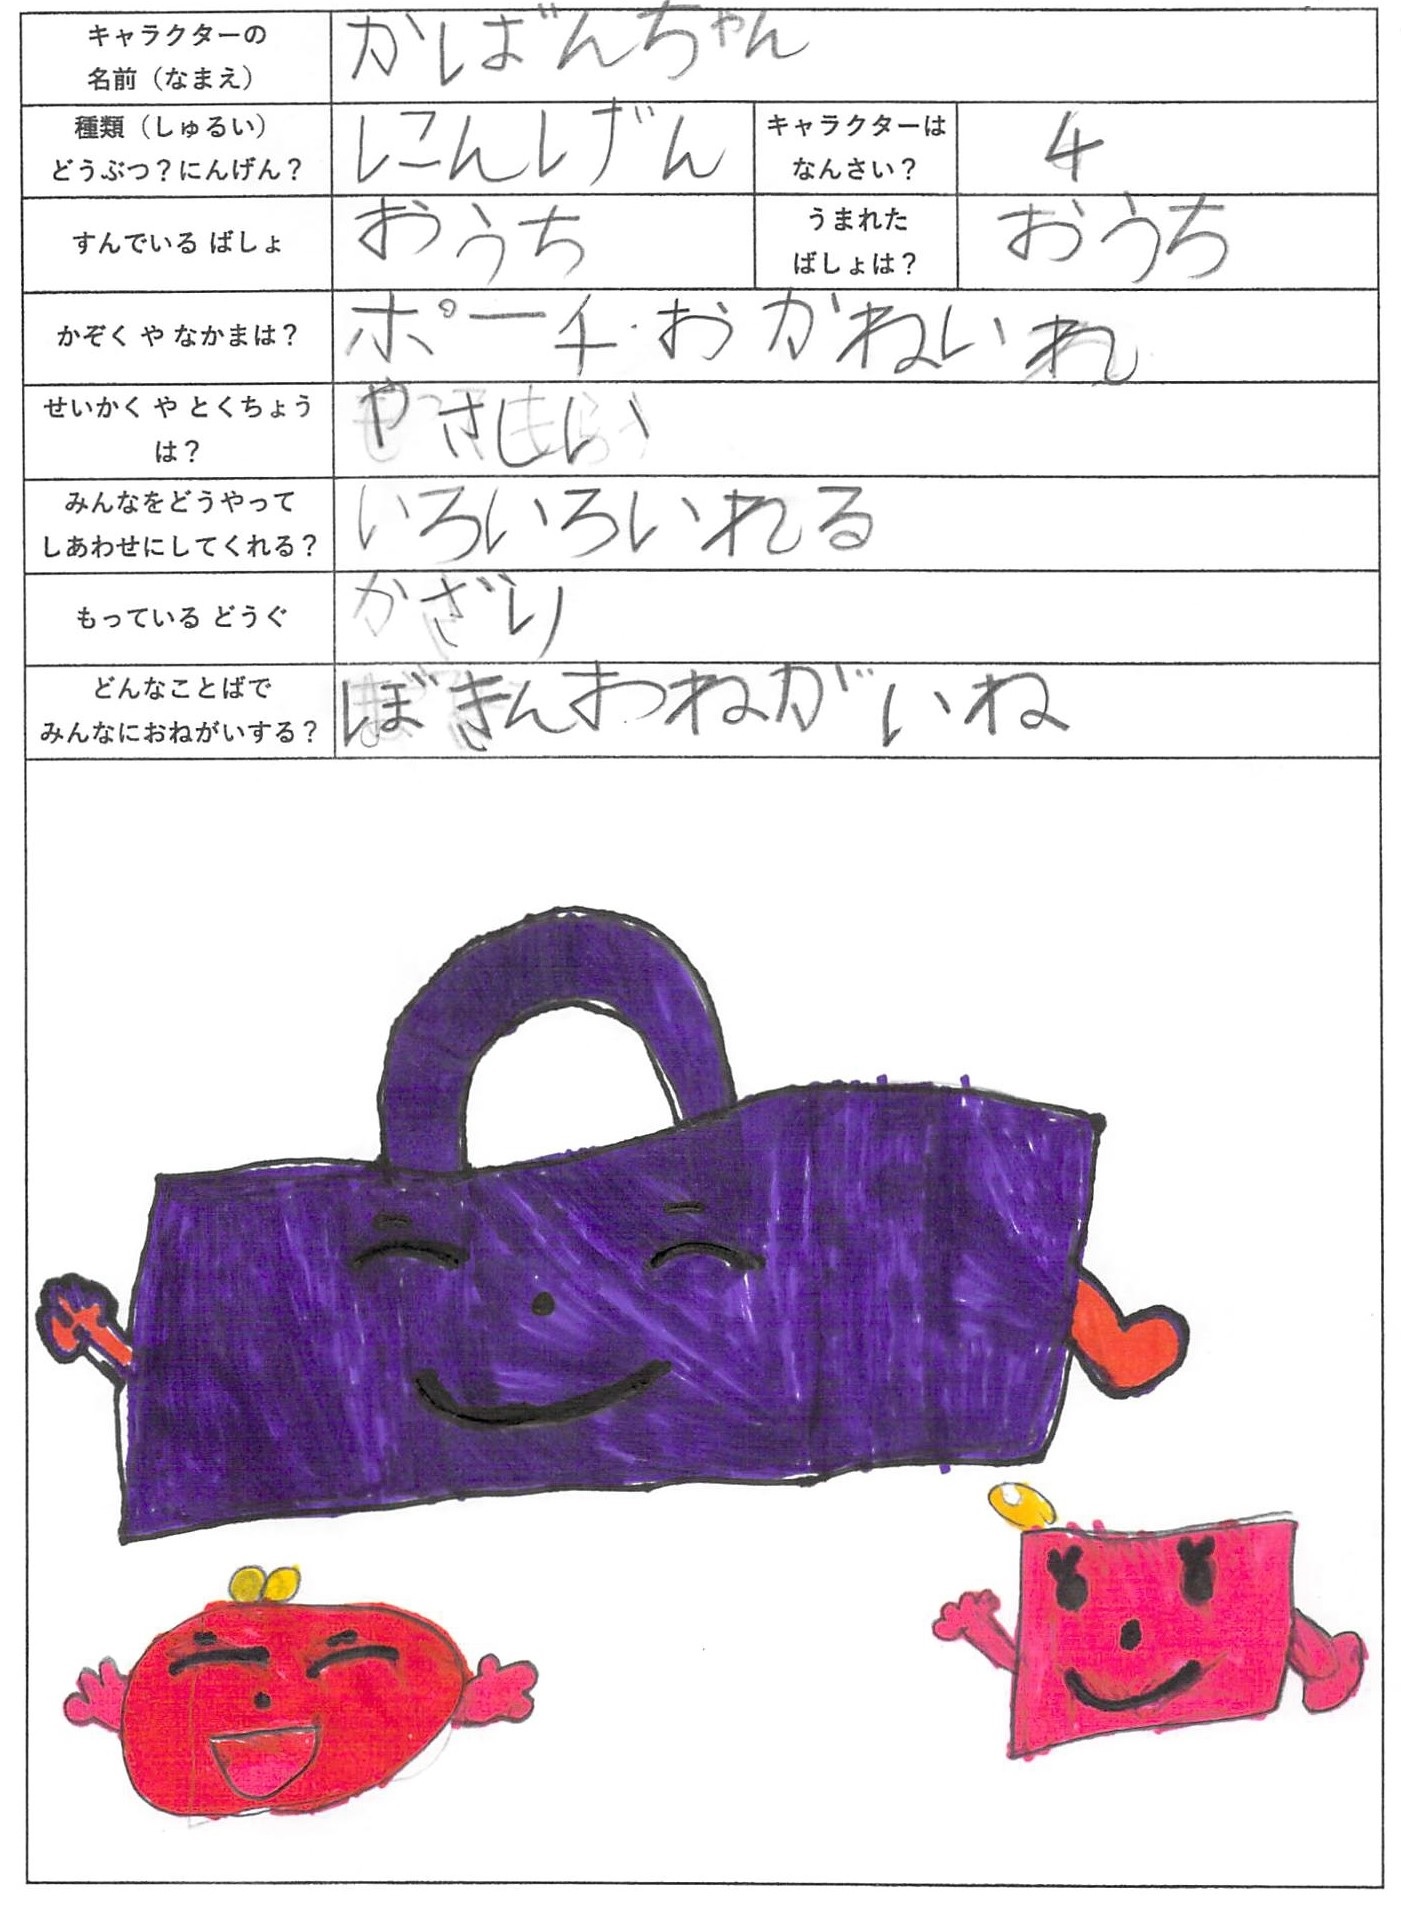 キャラクターの
名前（なまえ）
かばんちゃん
種類（しゅるい）
どうぶつ？にんげん？
にんしげん
キャラクターは
なんさい？
4
すんでいる ばしょ
おうち
うまれた
ばしょは？
おうち
かぞく や なかまは？
ポーチ・おかねいれ
せいかく や とくちょう
は？
やさしい
みんなをどうやって
しあわせにしてくれる？
いろいろいれる
もっている どうぐ
かざり
どんなことばで
みんなにおねがいする？
ぼきんおねがいね